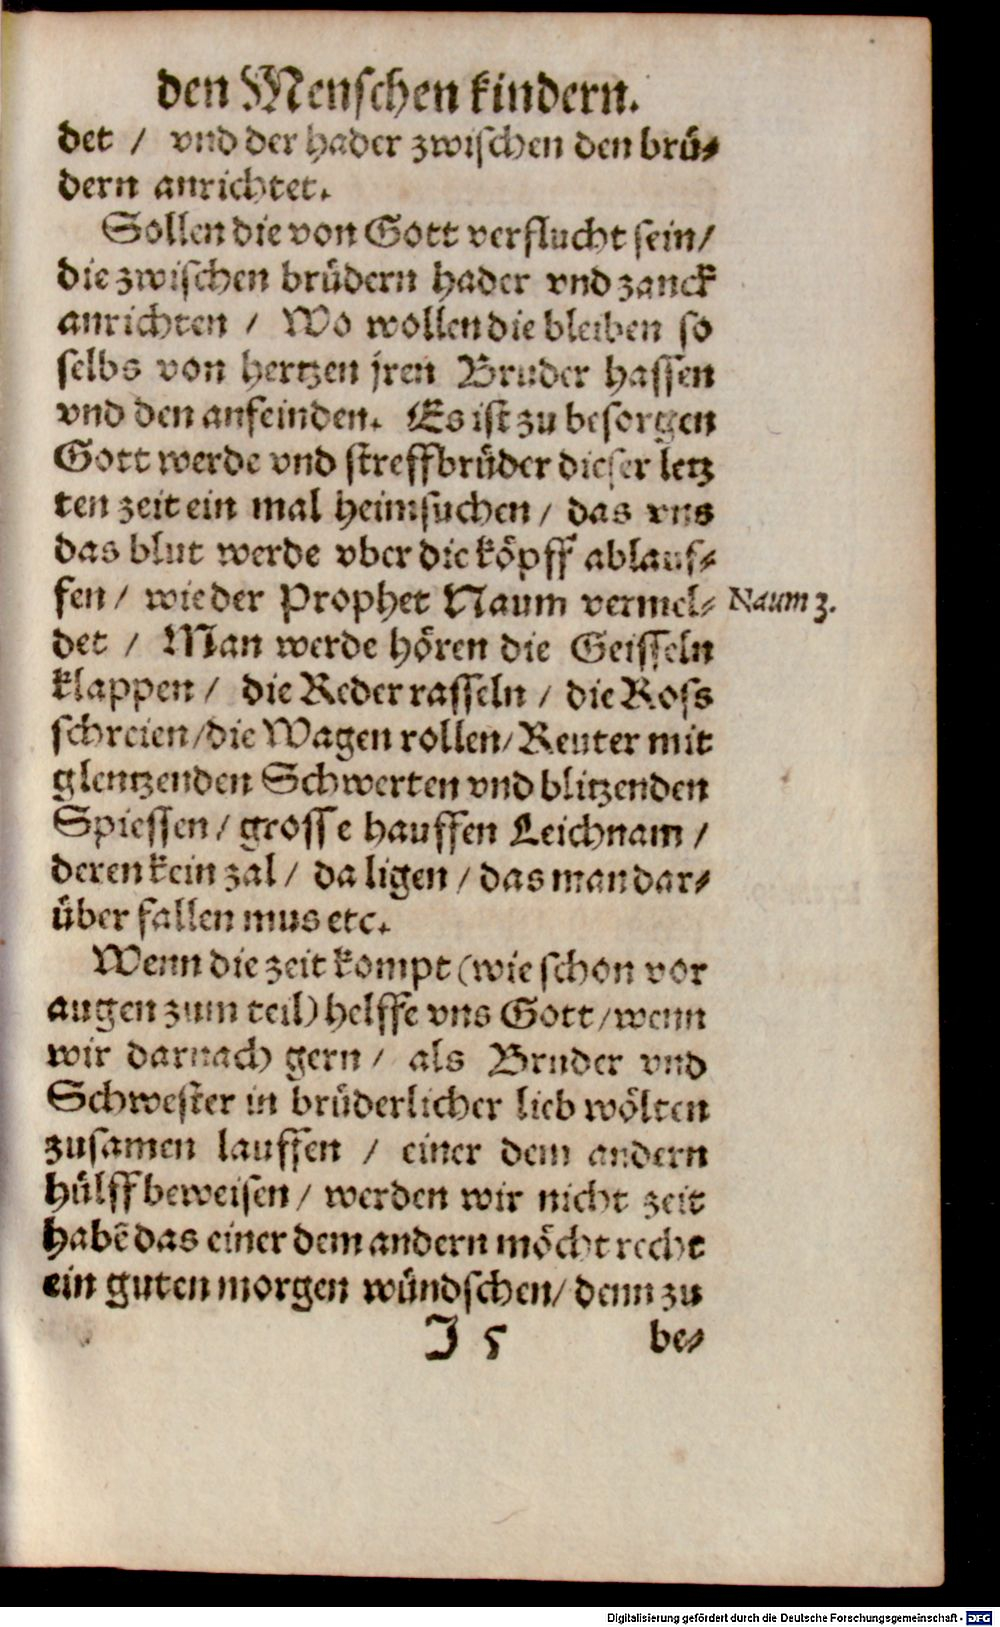 den Menschen kindern.
det / vnd der hader zwischen den brü-
dern anrichtet.
Sollen die von Gott verflucht sein/
die zwischen brüdern hader vnd zanck
anrichten / Wo wollen die bleiben so
selbs von hertzen jren Bruder hassen
vnd den anfeinden. Es ist zu besorgen
Gott werde vnd streffbrüder dieser letz
ten zeit ein mal heimsuchen / das vns
das blut werde vber die köpff ablauf-
fen / wie der Prophet Naum vermel-
Naum 3.
det / Man werde hören die Geisseln
klappen / die Reder rasseln / die Ross
schreien/die Wagen rollen/Reuter mit
glentzenden Schwerten vnd blitzenden
Spiessen / grosse hauffen Leichnam /
deren kein zal / da ligen / das man dar-
über fallen mus etc.
Wenn die zeit kompt (wie schon vor
augen zum teil) helffe vns Gott/wenn
wir darnach gern / als Bruder vnd
Schwester in brüderlicher lieb wölten
zusamen lauffen / einer dem andern
hülff beweisen / werden wir nicht zeit
habẽ das einer dem andern möcht recht
ein guten morgen wündschen/ denn zu
J 5 be-
Digitalisierung gefördert durch die Deutsche Forschungsgemeinschaft - DFG